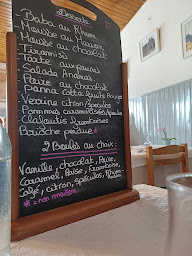 Desserts
Baba au Rhum
Mousse au citron
Mousse au chocolat
Tiramisu
Tarte aux poires
Salade Ananas
Poire au chocolat
Panna Cotta Fruits Rouges
Verrine citron/spéculos
Pommes caramélisées/spéculos
Clafoutis Framboises
Brioche perdue *
2 Boules au choix :
Vanille, chocolat, Poire,
Caramel, Fraise, Framboise,
Café, citron, spéculos, Rhum-
* = non modifiable